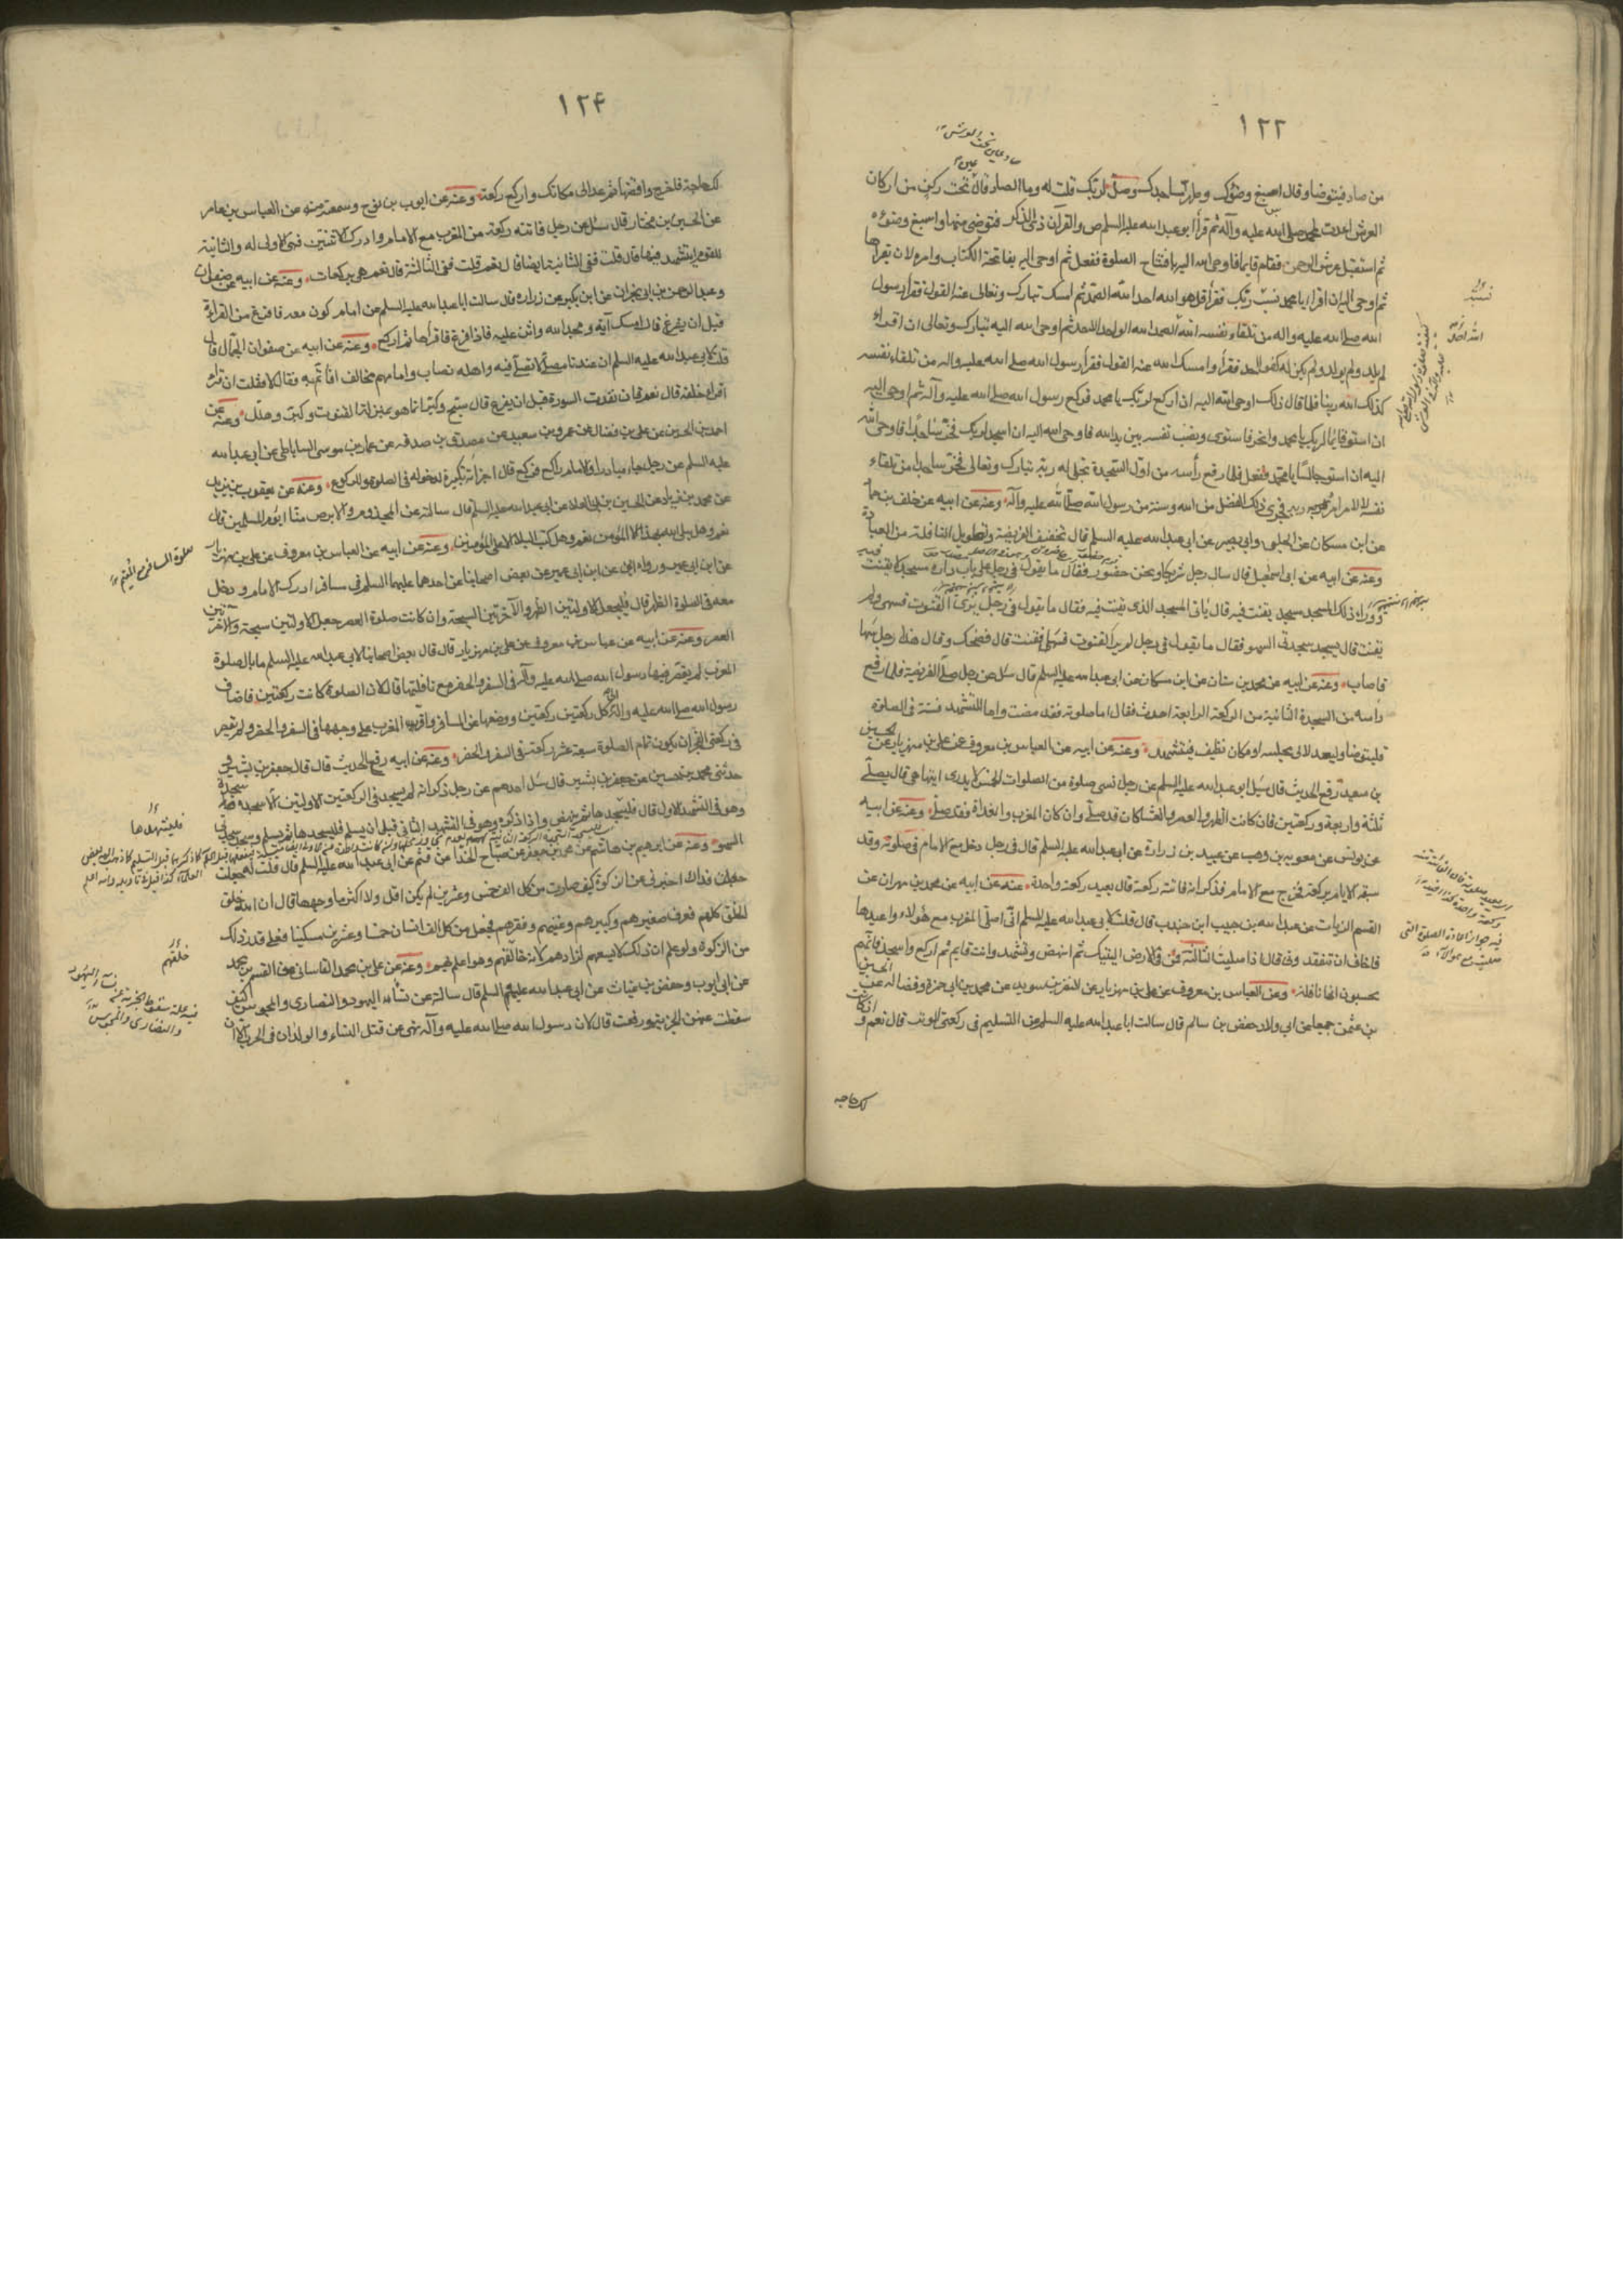 ١٢٢
من صاد فيتوضا وقال اصبغ وضوئك وطهر مساجدك وصل لربك قلت له وما الصاد قال تحت ركن من اركان
العرش اعدت لمحمد صلى الله عليه وآله ثم قرأ ابو عبد الله عليه السلم ص والقرآن ذى الذكر فتوضى منها واسبغ وضوءه
ثم استقبل عرش الرحمن فقام قايما فاوحى الله اليه بافتتاح الصلوة ففعل ثم اوحى اليه بفاتحة الكتاب وامره ان يقراها
ثم اوحى اليه ان اقرا يا محمد نسب ربك فقرأ قل هو الله احد الله الصمد ثم امسك تبارك وتعالى عنه القول فقرأ رسول
الله صلى الله عليه واله من تلقاء نفسه الله الصمد الله الواحد الاحد ثم اوحى الله اليه تبارك وتعالى ان اقرا
لم يلد ولم يولد ولم يكن له كفوا احد فقرأ وامسك الله عنه القول فقرأ رسول الله صلى الله عليه واله من تلقاء نفسه
كذلك الله ربنا فلما قال ذلك اوحى الله اليه ان اركع لربك يا محمد فركع رسول الله صلى الله عليه وآله ثم اوحى اليه
ان استو قائما لربك يا محمد وانحر فاستوى ونصب نفسه بين يدى الله فاوحى الله اليه ان اسجد لربك فخر ساجدا فاوحى الله
اليه ان استو جالسا يا محمد ففعل فلما رفع رأسه من اول السجدة تجلى له ربه تبارك وتعالى فخر ساجدا من تلقاء
نفسه لا لامر امره به ربه فجرى ذلك الفضل من الله وسنة من رسول الله صلى الله عليه وآله وعنه عن ابيه عن خلف بن حماد
عن ابن مسكان عن الحلبى وابى بصير عن ابى عبد الله عليه السلم قال تخفيف الفريضة وتطويل النافلة من العبادة
وعنه عن ابيه عن ابى اسمعيل قال سال رجل شريكا ونحن حضور فقال ما تقول فى رجل على باب داره مسجد لا يقنت فيه
ووراء ذلك المسجد مسجد يقنت فيه قال ياتى المسجد الذى يقنت فيه فقال ما تقول فى رجل يرى القنوت فسهى ولم
يقنت قال يسجد سجدتى السهو فقال ما تقول فى رجل لم ير القنوت فسها فقنت قال فضحك وقال هذا رجل سها
فاصاب وعنه عن ابيه عن محمد بن سنان عن ابن مسكان عن ابى عبد الله عليه السلم قال سئل عن رجل صلى الفريضة فلما رفع
رأسه من السجدة الثانية من الركعة الرابعة احدث فقال اما صلوته فقد مضت واما التشهد فسنة فى الصلوة
فليتوضا وليعد الى مجلسه او مكان نظيف فيتشهد وعنه عن ابيه عن العباس بن معروف عن على بن مهزيار عن الحسين
بن سعيد رفع الحديث قال سئل ابو عبد الله عليه السلم عن رجل نسى صلوة من الصلوات الخمس لا يدرى ايتها هى قال يصلى
ثلثة واربعة وركعتين فان كانت الظهر والعصر والعشاء كان قد صلى وان كان المغرب والغداة فقد صلى وعنه عن ابيه
عن يونس عن معوية بن وهب عن عبيد بن زرارة عن ابى عبد الله عليه السلم قال فى رجل دخل مع الامام فى صلوته وقد
سبقه الامام بركعة فخرج مع الامام فذكر انه فاتته ركعة قال يعيد ركعة واحدة وعنه عن ابيه عن محمد بن مهران عن
القسم الزيات عن عبد الله بن حبيب ابن جندب قال قلت لابى عبد الله عليه السلم انى اصلى المغرب مع هؤلاء واعيدها
فاخاف ان تتفقدونى قال اذا صليت الثالثة فمكن فى الارض اليتيك ثم انهض وتشهد وانت قايم ثم اركع واسجد فانهم
يحسبون انها نافلة وعن العباس بن معروف عن على بن مهزيار عن النضر بن سويد عن محمد بن ابى حمزة وفضالة عن الحسين
بن عثمن جميعا عن ابى ولاد حفص بن سالم قال سالت ابا عبد الله عليه السلم عن التسليم فى ركعتى الوتر فقال نعم وان كانت
لك حاجة
١٢۴
لك حاجة فاخرج واقضها ثم عد الى مكانك واركع ركعة وعنه عن ايوب بن نوح وسمعته منه عن العباس بن عامر
عن الحسين بن مختار قال سئل عن رجل فاتته ركعة من المغرب مع الامام وادرك الاثنتين فهى الاولى له والثانية
للقوم ايتشهد فيها قال قلت ففى الثانية ايضا قال نعم قلت ففى الثالثة قال نعم هى بركات وعنه عن ابيه عن صفوان
وعبد الرحمن بن ابى نجران عن ابن بكير عن زرارة قال سالت ابا عبد الله عليه السلم عن امام اكون معه فافرغ من القراءة
قبل ان يفرغ قال امسك آية ومجد الله واثن عليه فاذا فرغ فاقراها ثم اركع وعنه عن ابيه عن صفوان الجمال قال
قلت لابى عبد الله عليه السلم ان عندنا مصلى لا نصلى فيه واهله نصاب وامامهم مخالف افاتم به فقال لا فقلت ان قرأ
اقرأ خلفه قال نعم قلت فان نفدت السورة قبل ان يفرغ قال سبح وكبر انما هو بمنزلة القنوت وكبر وهلل وعنه عن
احمد بن الحسن عن على بن فضال عن عمرو بن سعيد عن مصدق بن صدقة عن عمار بن موسى الساباطى عن ابى عبد الله
عليه السلم عن رجل جاء مبادرا والامام راكع فركع قال اجزأته تكبيرة لدخوله فى الصلوة وللركوع وعنه عن يعقوب بن يزيد
عن محمد بن زياد عن الحسين بن ابى العلا عن ابى عبد الله عليه السلم قال سالته عن المجذوم والابرص منا ايؤم المسلمين قال
نعم وهل يبلى الله بهذا الا المؤمن نعم وهل كتب البلاء الا على المؤمنين وعنه عن ابيه عن العباس بن معروف عن على بن مهزيار
عن ابن ابى عمير ورواه ابى عن ابن ابى عمير عن بعض اصحابنا عن احدهما عليهما السلم فى مسافر ادرك الامام ودخل
معه فى الصلوة الظهر قال فليجعل الاولتين الظهر والآخرتين السبحة وان كانت صلوة العصر جعل الاولتين سبحة والآخرتين
العصر وعنه عن ابيه عن عباس بن معروف عن على بن مهزيار قال قال بعض اصحابنا لابى عبد الله عليه السلم ما بال صلوة
المغرب لم يقصر فيها رسول الله صلى الله عليه وآله فى السفر والحضر مع نافلتها قال لان الصلوة كانت ركعتين فاضاف
رسول الله صلى الله عليه وآله الى كل ركعتين ركعتين ووضعها عن المسافر واقر المغرب على وجهها فى السفر والحضر ولم يقصر
فى ركعتى الفجر ان يكون تمام الصلوة سبعة عشر ركعة فى السفر والحضر وعنه عن ابيه رفع الحديث قال قال جعفر بن بشير فى
حدثنى محمد بن حسين عن جعفر بن بشير قال سئل احدهم عن رجل ذكر انه لم يسجد فى الركعتين الاولتين الا سجدة
وهو فى التشهد الاول قال فليسجدها ثم ينهض واذا ذكره وهو فى التشهد الثانى قبل ان يسلم فليسجدها ثم يسلم وسجد سجدتى
السهو وعنه عن ابرهيم بن هاشم عن محمد بن جعفر عن صباح الحذاء عن قثم عن ابى عبد الله عليه السلم قال قلت له جعلت
جعلت فداك اخبرنى عن الزكوة كيف صارت من كل الف خمس وعشرين لم يكن اقل ولا اكثر ما وجهها قال ان الله خلق
الخلق كلهم فعرف صغيرهم وكبيرهم وغنيهم وفقيرهم فجعل من كل الف انسان خمسا وعشرين مسكينا فعلى قدر ذلك
من الزكوة ولو علم ان ذلك لا يسعهم لزادهم لانه خالقهم وهو اعلم بهم وعنه عن على بن محمد القاسانى عن القسم بن محمد
عن ابى ايوب وحفص بن غياث عن ابى عبد الله عليه السلم قال سالته عن نساء اليهود والنصارى والمجوس كيف
سقطت عنهن الجزية ورفعت قال لان رسول الله صلى الله عليه وآله نهى عن قتل النساء والولدان فى الحرب الا ان
صلوة المسافر مع المقيم
خلقهم